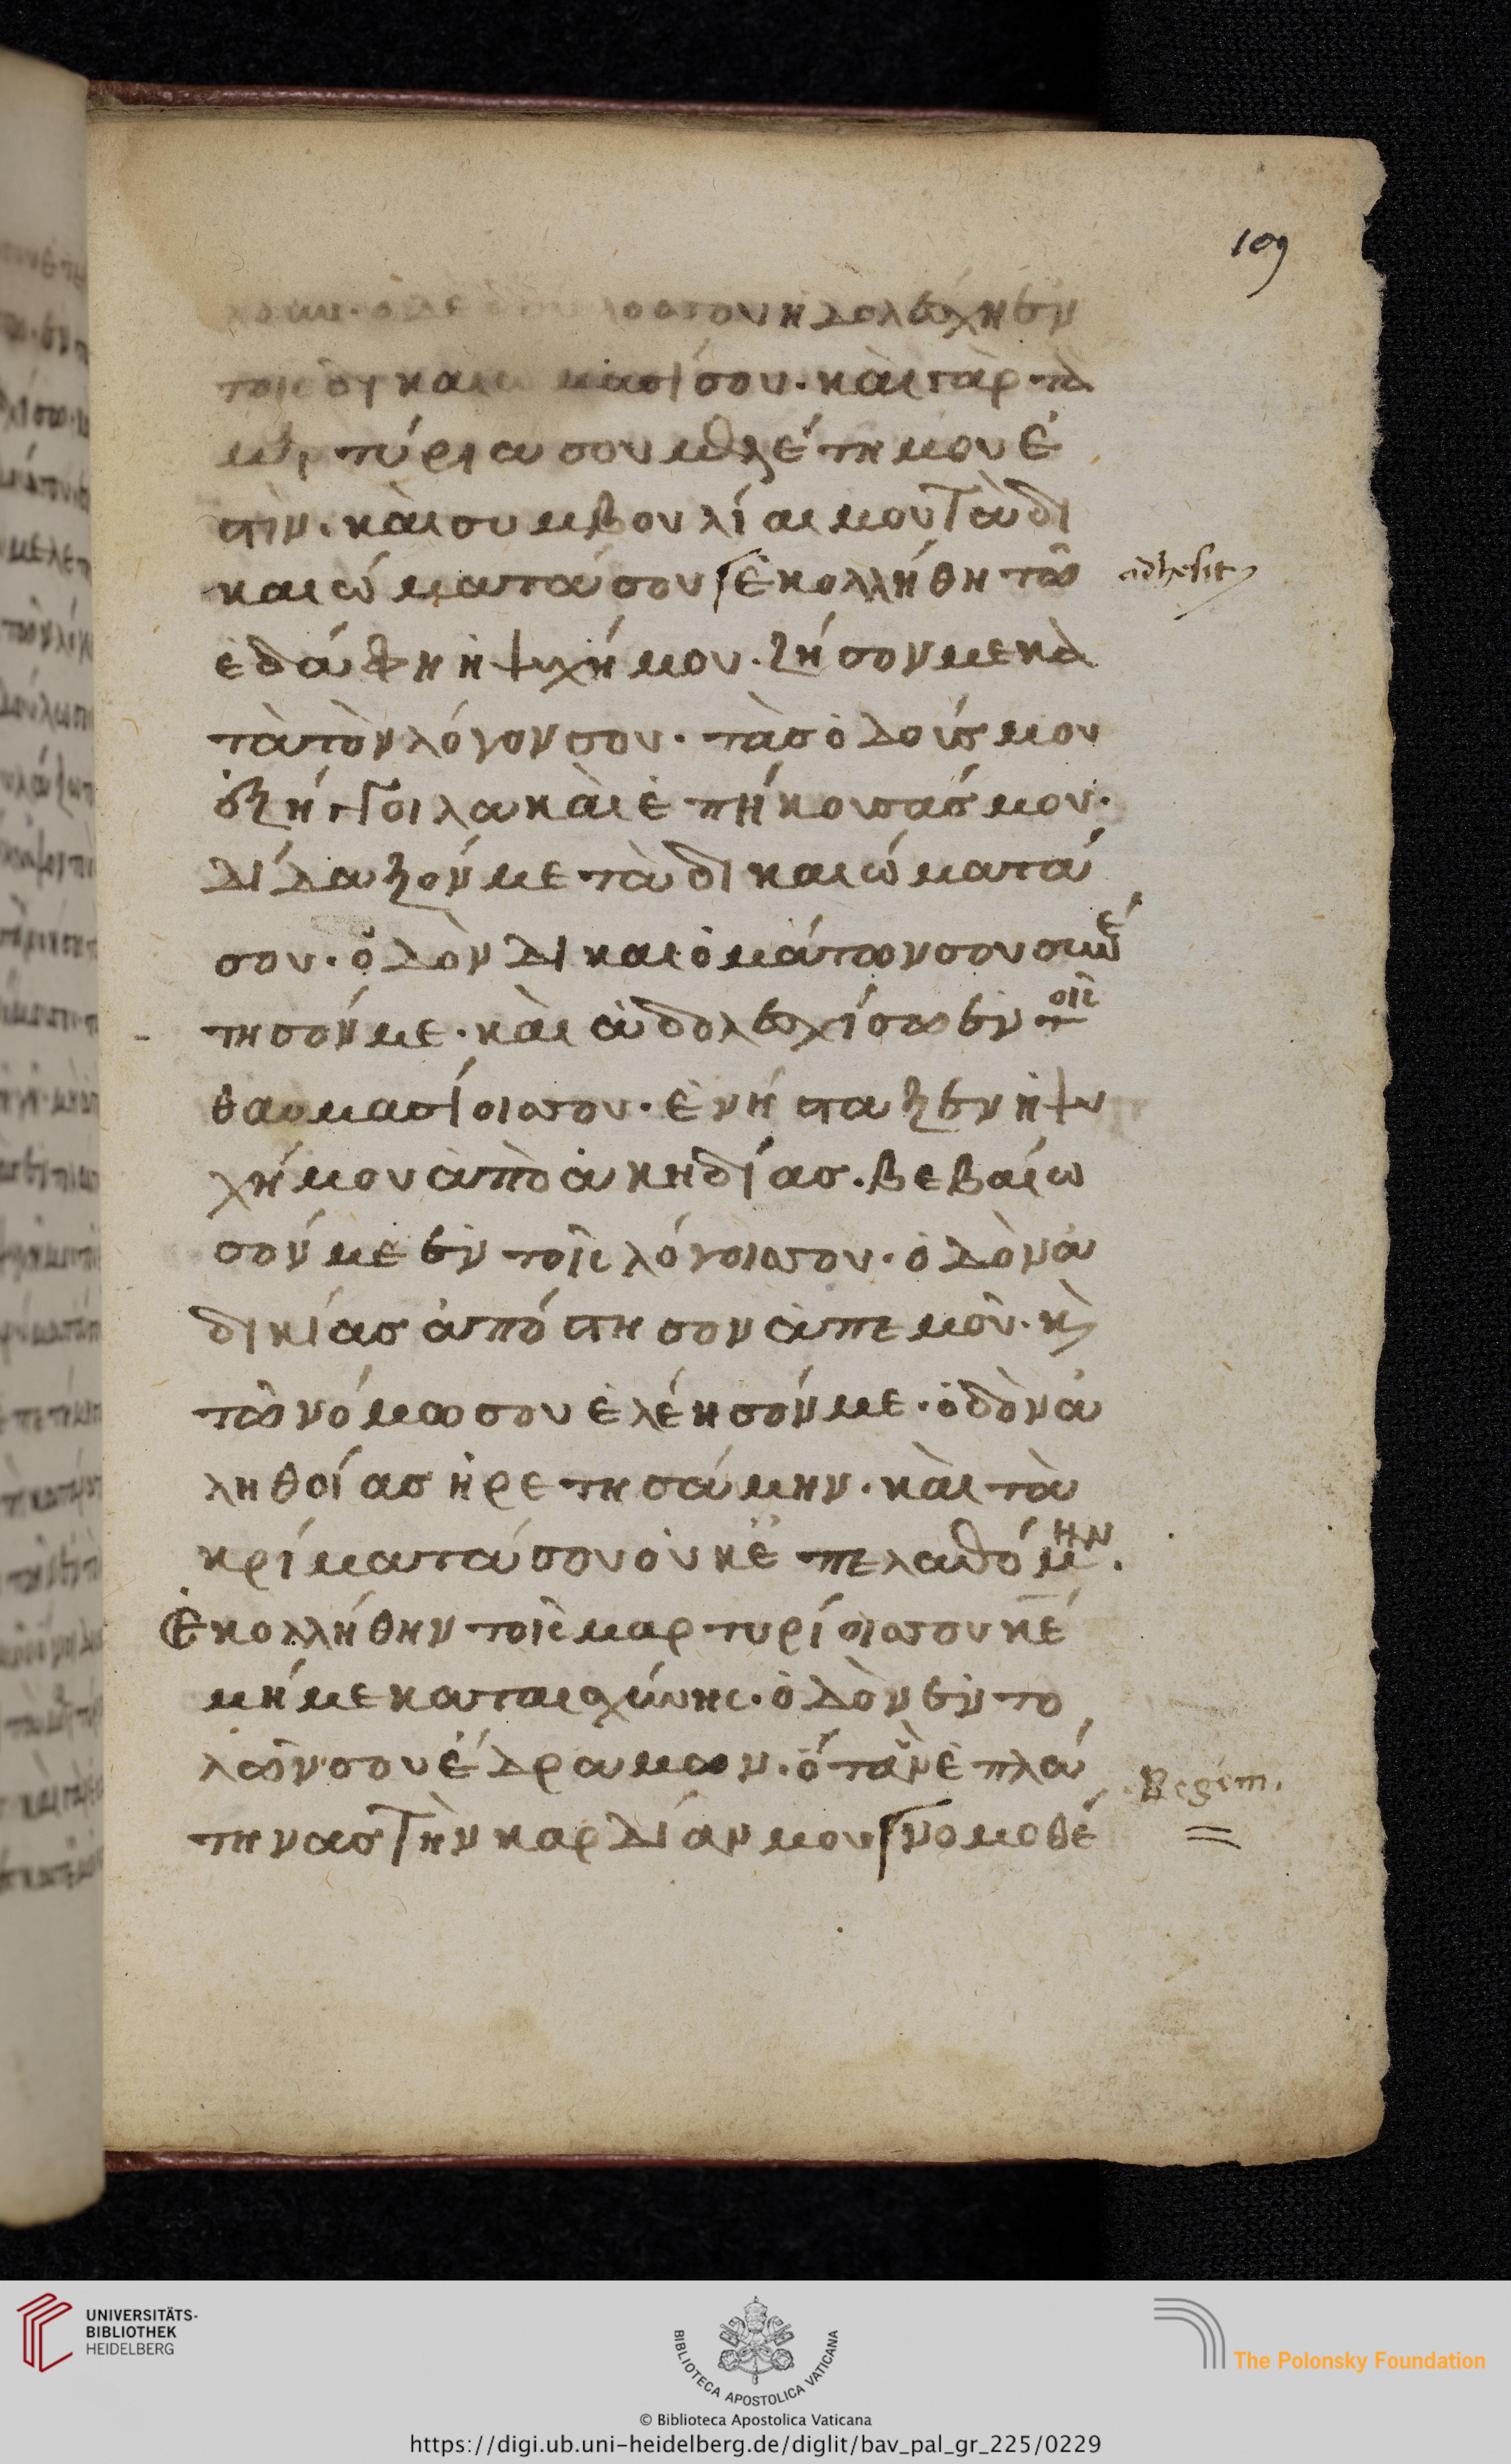 109
σου ἠδολέσχη ἐν
τοῖς δικαι μασί σου. καὶ γὰρ τὰ
μαρτύριά σου μελέτη μου ἐ
στὶν. καὶ συμβουλίαι μου τὰ δι
καιώματά σου ἐκολλήθη τῶ
adhesit
ἐδάφη ἡ ψυχή μου. ζήσον με κα
τὰ τὸν λόγον σου. τὰσ ὁδούς μου
ἐξήγγειλα καὶ ἐπήκουσάσ μου.
δίδαξόν με τὰ δικαιώματά
σου. ὁδὸν δικαιομάτων σου συνέ
τησόν με. καὶ ἀδολεσχίσω ἐν τοῖς
θαυμασίοισ σου. ἐνήσταξεν ἡ ψυ
χή μου ἀπὸ ἀκηδίασ. βεβαίω
σόν με ἐν τοῖς λόγοισ σου. ὁδὸν ἀ
δικίασ ἀπόστησον ἀπεμοῦ. κὶ
τῶ νόμω σου ἐλέησόν με. ὁδὸν ἀ
ληθείασ ἡρετησάμην. καὶ τὰ
κρίματά σου οὐκ ἐπελαθόμην.
Ἐκολλήθην τοῖς μαρτυρίοισ σου κ̅ε̅
μή με καταισχύνης. ὁδὸν ἐντο
λῶν σου ἔδραμων. ὅταν ἐπλά
τηνασ τὴν καρδίαν μου νομοθέ
Legem.
UNIVERSITÄTS-
BIBLIOTHEK
HEIDELBERG
BIBLIOTECA APOSTOLICA VATICANA
The Polonsky Foundation
© Biblioteca Apostolica Vaticana
https://digi.ub.uni-heidelberg.de/diglit/bav_pal_gr_225/0229